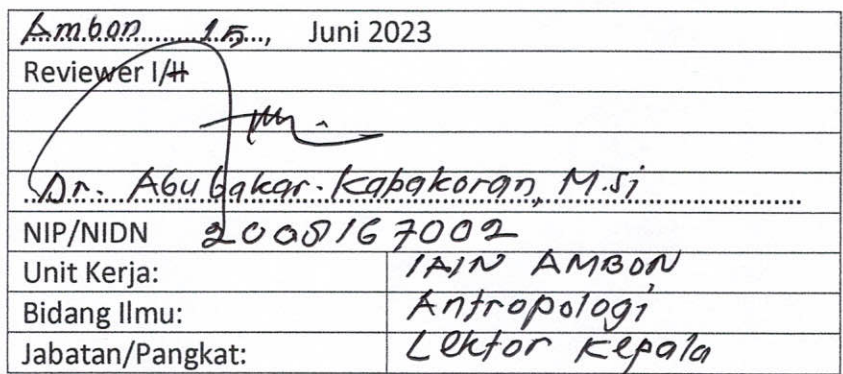 Ambon 15, Juni 2023
Reviewer I/II
Dr. Abubakar. Kabakoran, M.Si
NIP/NIDN 2005167002
Unit Kerja: IAIN AMBON
Bidang Ilmu: Antropologi
Jabatan/Pangkat: Lektor Kepala